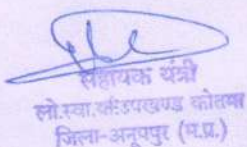 सहायक यंत्री
लो.स्वा.यां.उपखण्ड कोतमा
जिला-अनूपपुर (म.प्र.)